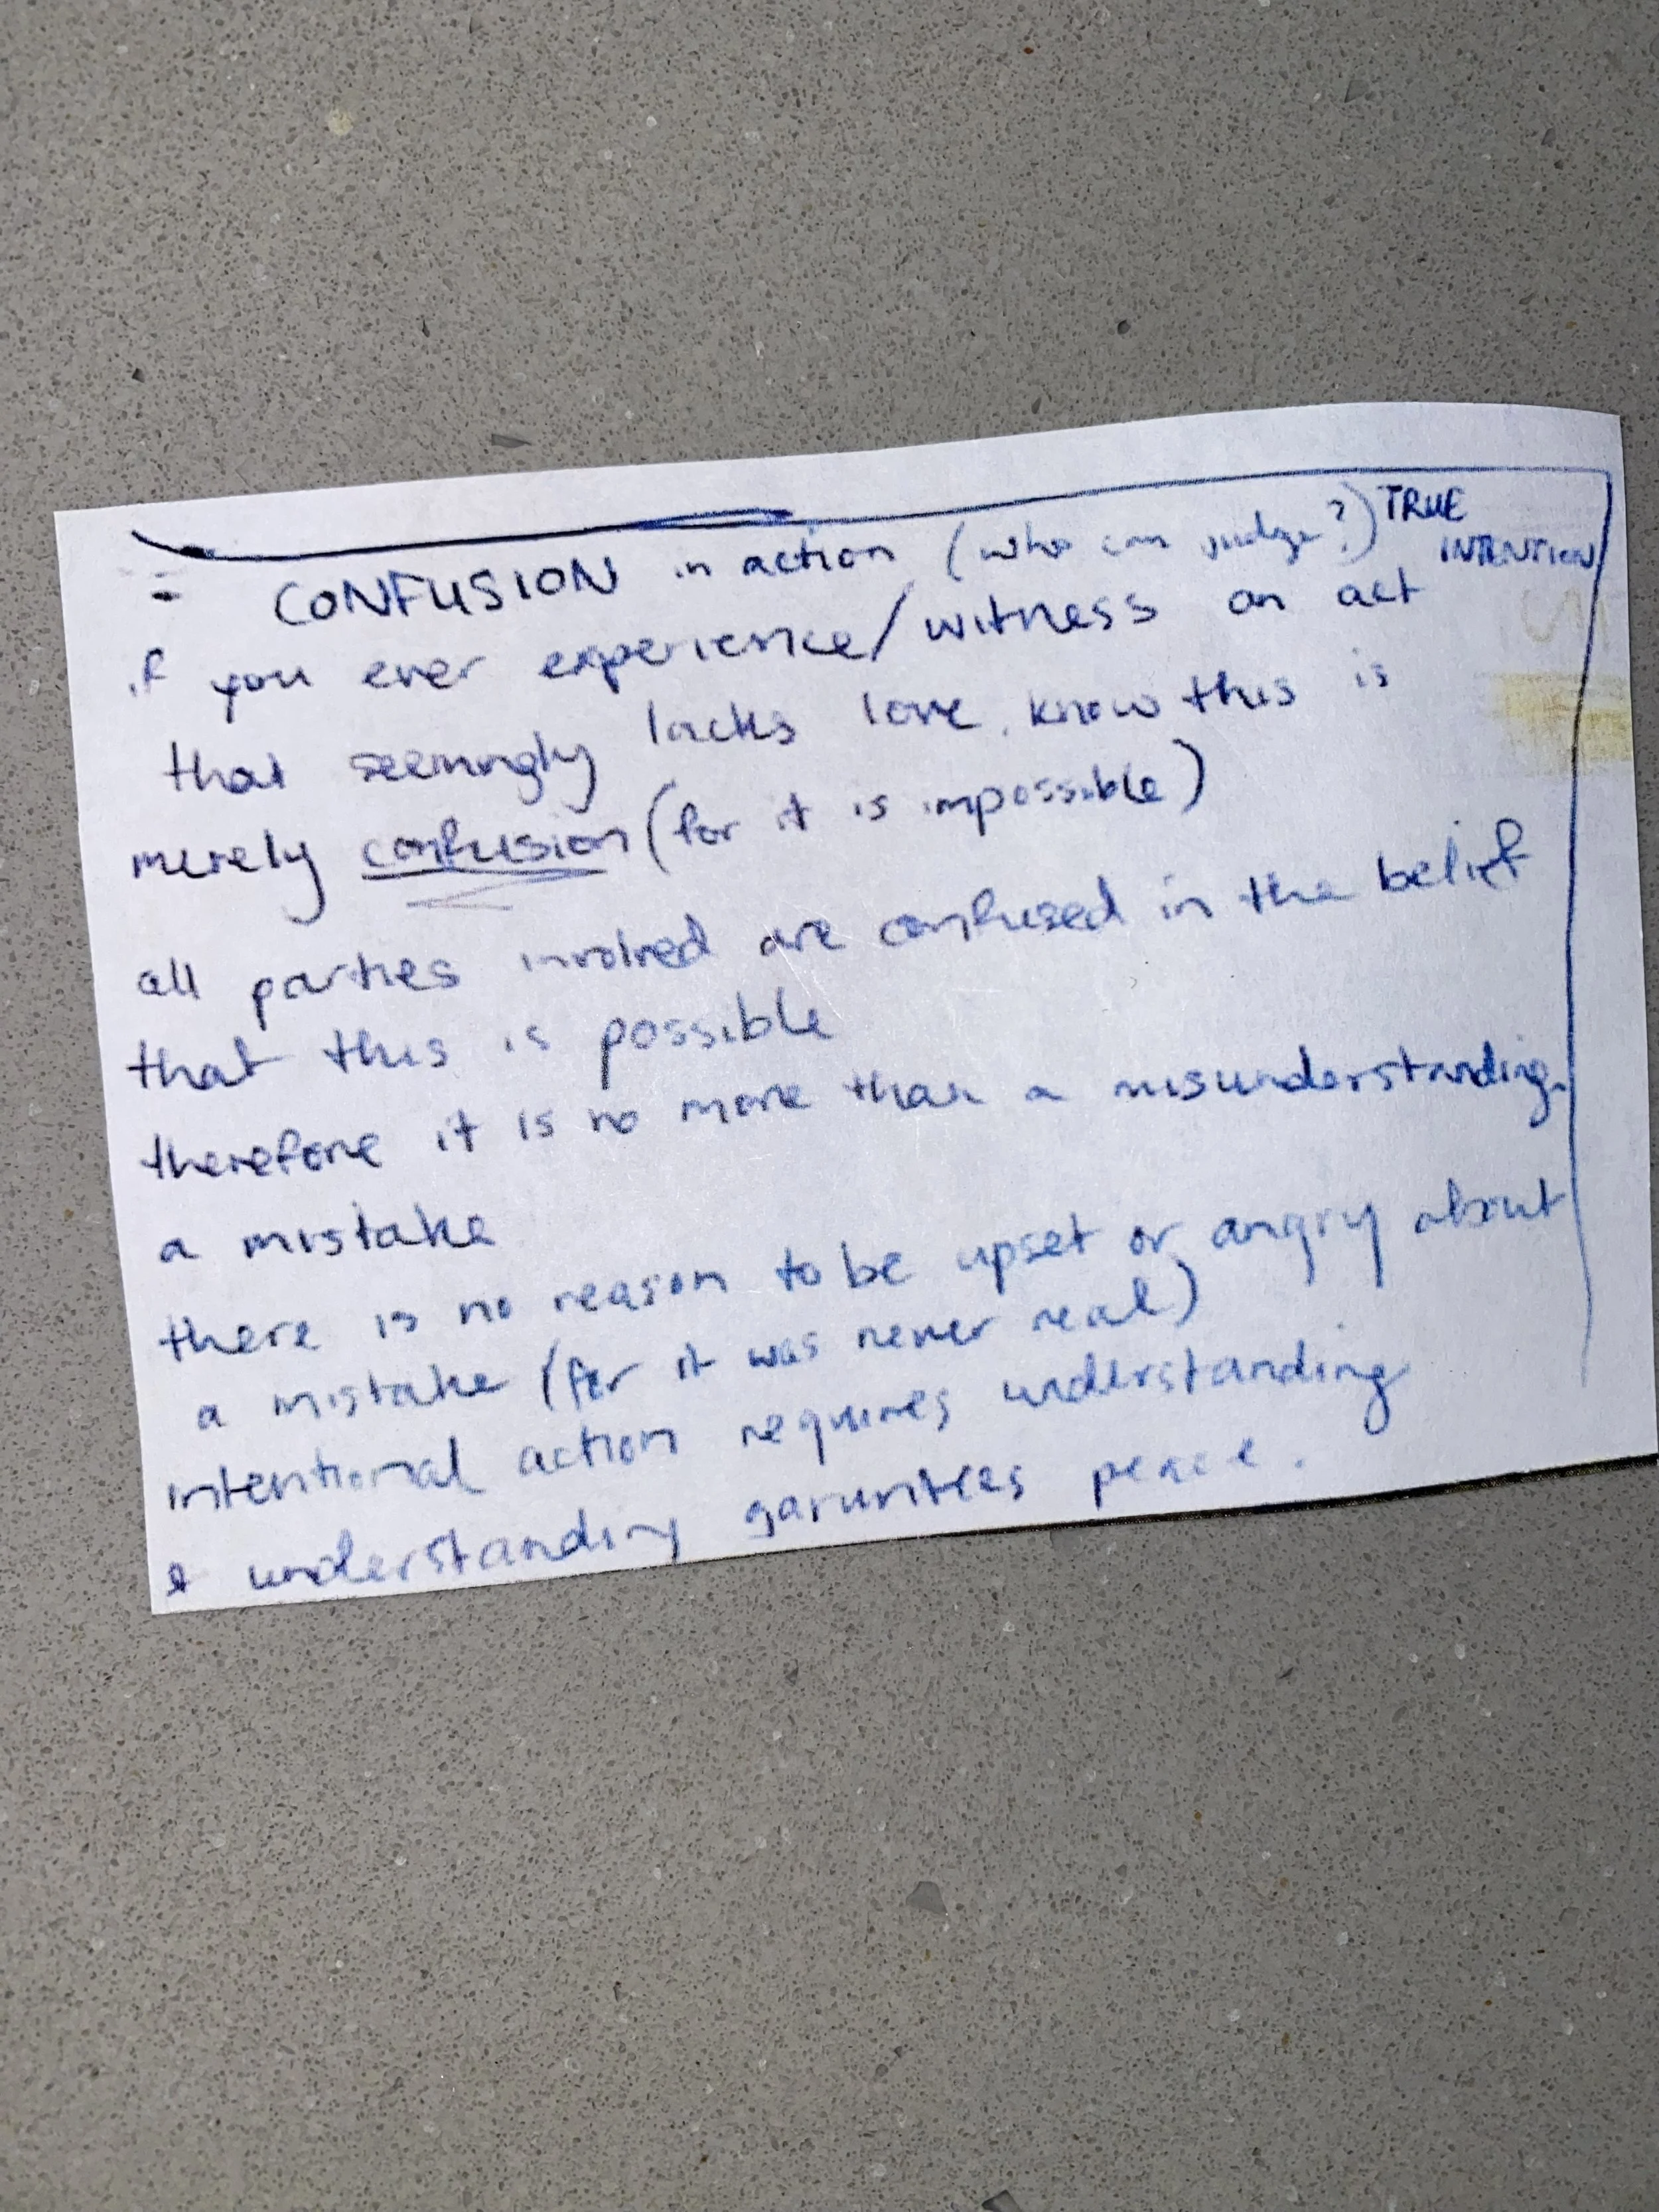 = CONFUSION in action (who can judge?) TRUE
INTENTION
if you ever experience/witness an act
that seemingly lacks love, know this is
merely confusion (for it is impossible)
all parties involved are confused in the belief
that this is possible
therefore it is no more than a misunderstanding.
a mistake
there is no reason to be upset or angry about
a mistake (for it was never real)
intentional action requires understanding
& understanding garuntees peace.